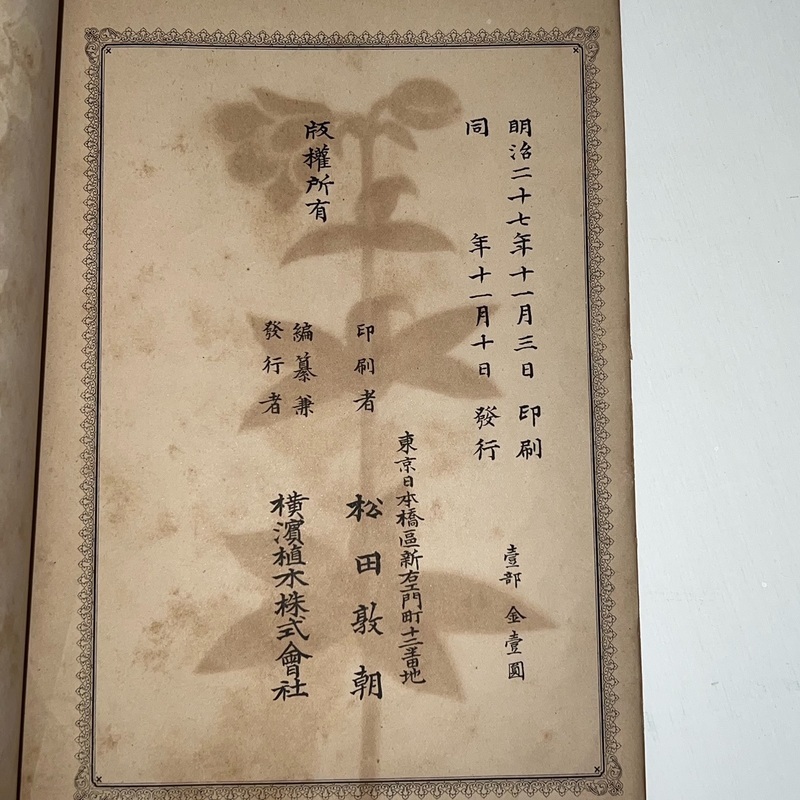 明治二十七年十一月三日印刷
同年十一月十日發行
壹部金壹圓
版權所有
東京日本橋區新右エ門町十二番地
印刷者 松田敦朝
編纂兼
發行者 横濱植木株式會社